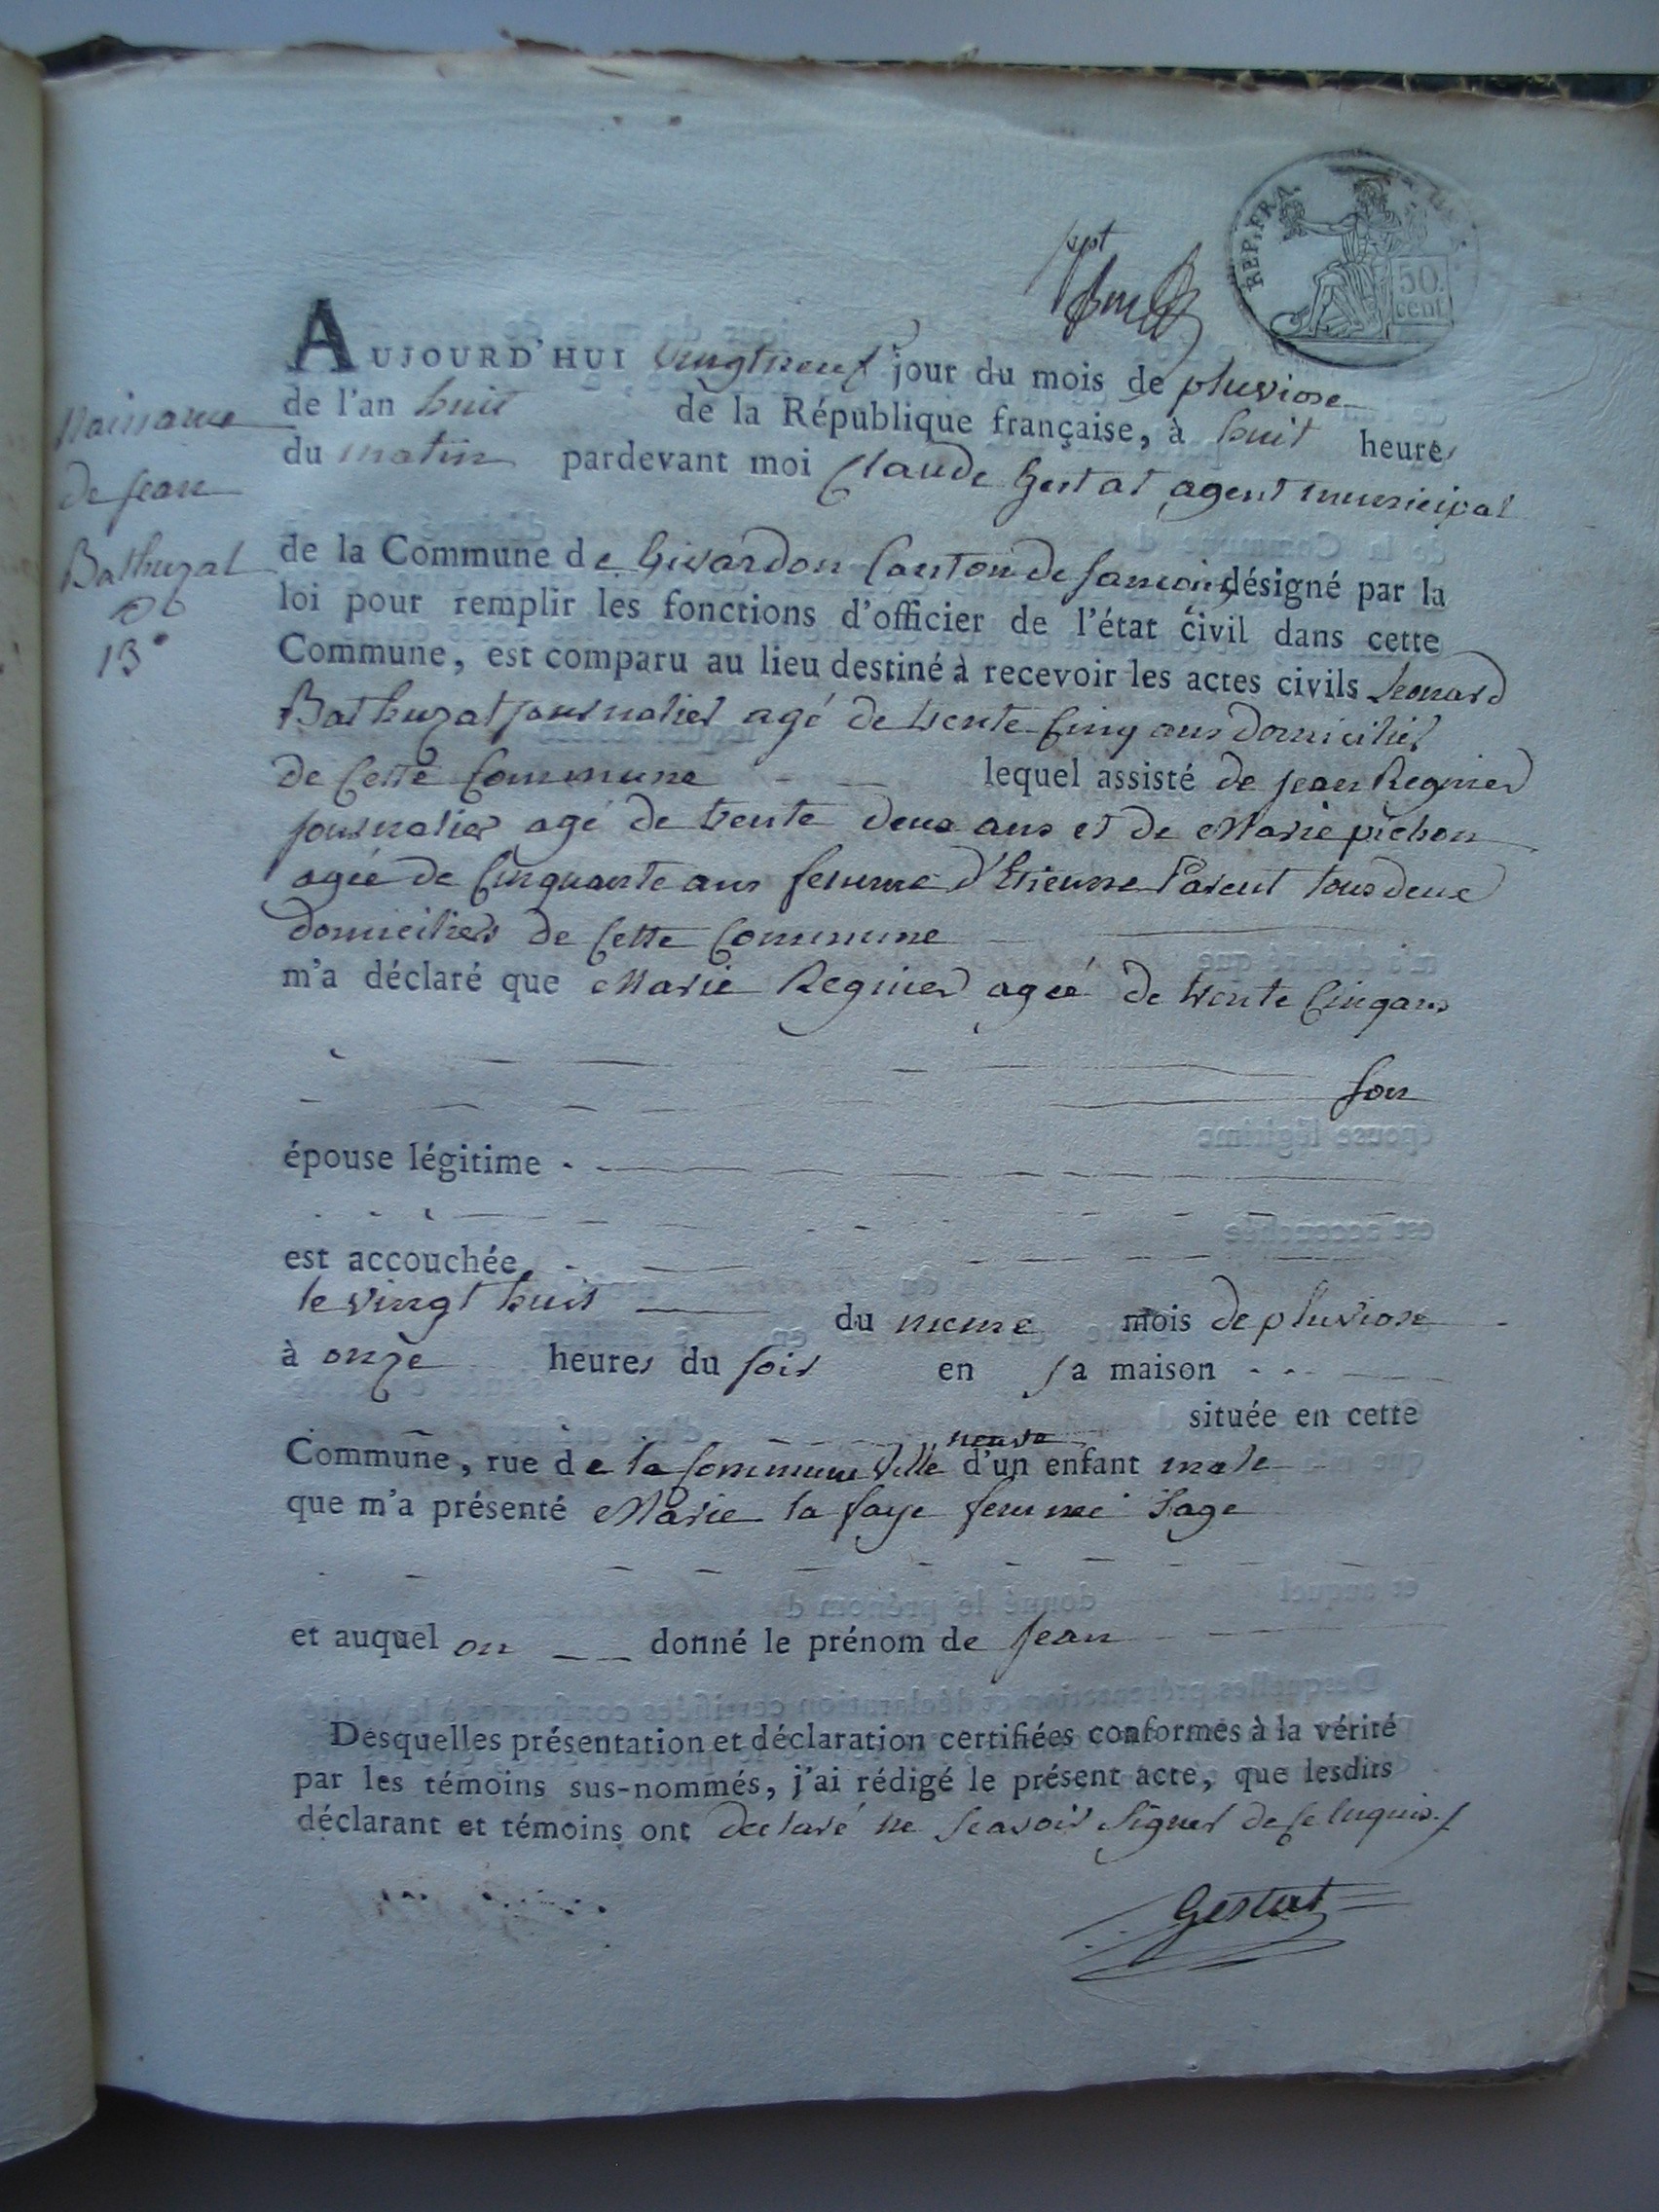 sept
REP. FRA.
50.
cent
AUJOURD'HUI vingt neuf jour du mois de pluviose
de l'an huit de la République française, à huit heures
du matin pardevant moi Claude Gestat agent municipal
Naissance
de jean
Bathuzat
13e
de la Commune de Givardon Canton de Sancoins désigné par la
loi pour remplir les fonctions d'officier de l'état civil dans cette
Commune, est comparu au lieu destiné à recevoir les actes civils Leonard
Bathuzat journalier agé de trente Cinq ans domicilier
de Cette Commune lequel assisté de jean Regnier
journalier agé de trente deux ans et de Marie pichon
agée de Cinquante ans femme d'Etienne Parent tous deux
domiciliers de Cette Commune
m'a déclaré que Marie Regnier agée de trente Cinq ans
son
épouse légitime
est accouchée
le vingt huit du meme mois de pluviose
à onze heures du soir en sa maison
située en cette
Commune, rue de la Commune Ville neuve d'un enfant male
que m'a présenté Marie la faye femme Sage
et auquel on donné le prénom de jean
Desquelles présentation et déclaration certifiées conformes à la vérité
par les témoins sus-nommés, j'ai rédigé le présent acte, que lesdits
déclarant et témoins ont declaré ne scavoir signer de ce enquis
Gestat